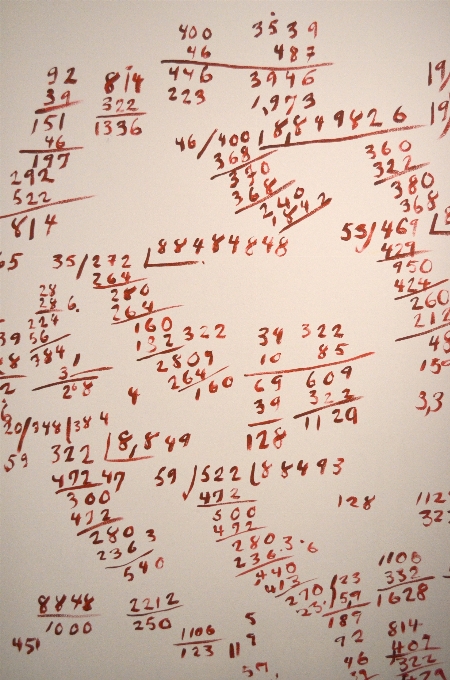 400 3539
46 487
446 3946
223 1,973
92 814
39 322
151 1336
46
197
292
522
814
46/400 18,849826
368
320
368
240
1842
360
322
380
368
19/
19/
53/469
427
950
424
260
212
48
65
35/272 88484848
264
280
264
160
132 322
2809
264
160
28
28 6.
224
56
784
3
268
4
34 322
10 85
69 609
39 322
128 1129
3,3
20/348/384
59
322 8,849
472 47
300
472
280
236 3
540
59 522 88493
472
500
472
280
236.3.6
440
413
270
128
112
322
1106
332
1628
123
59
189
92
46
814
407
322
8848
1000
2212
250
451
1106
123
5
11 9
59,